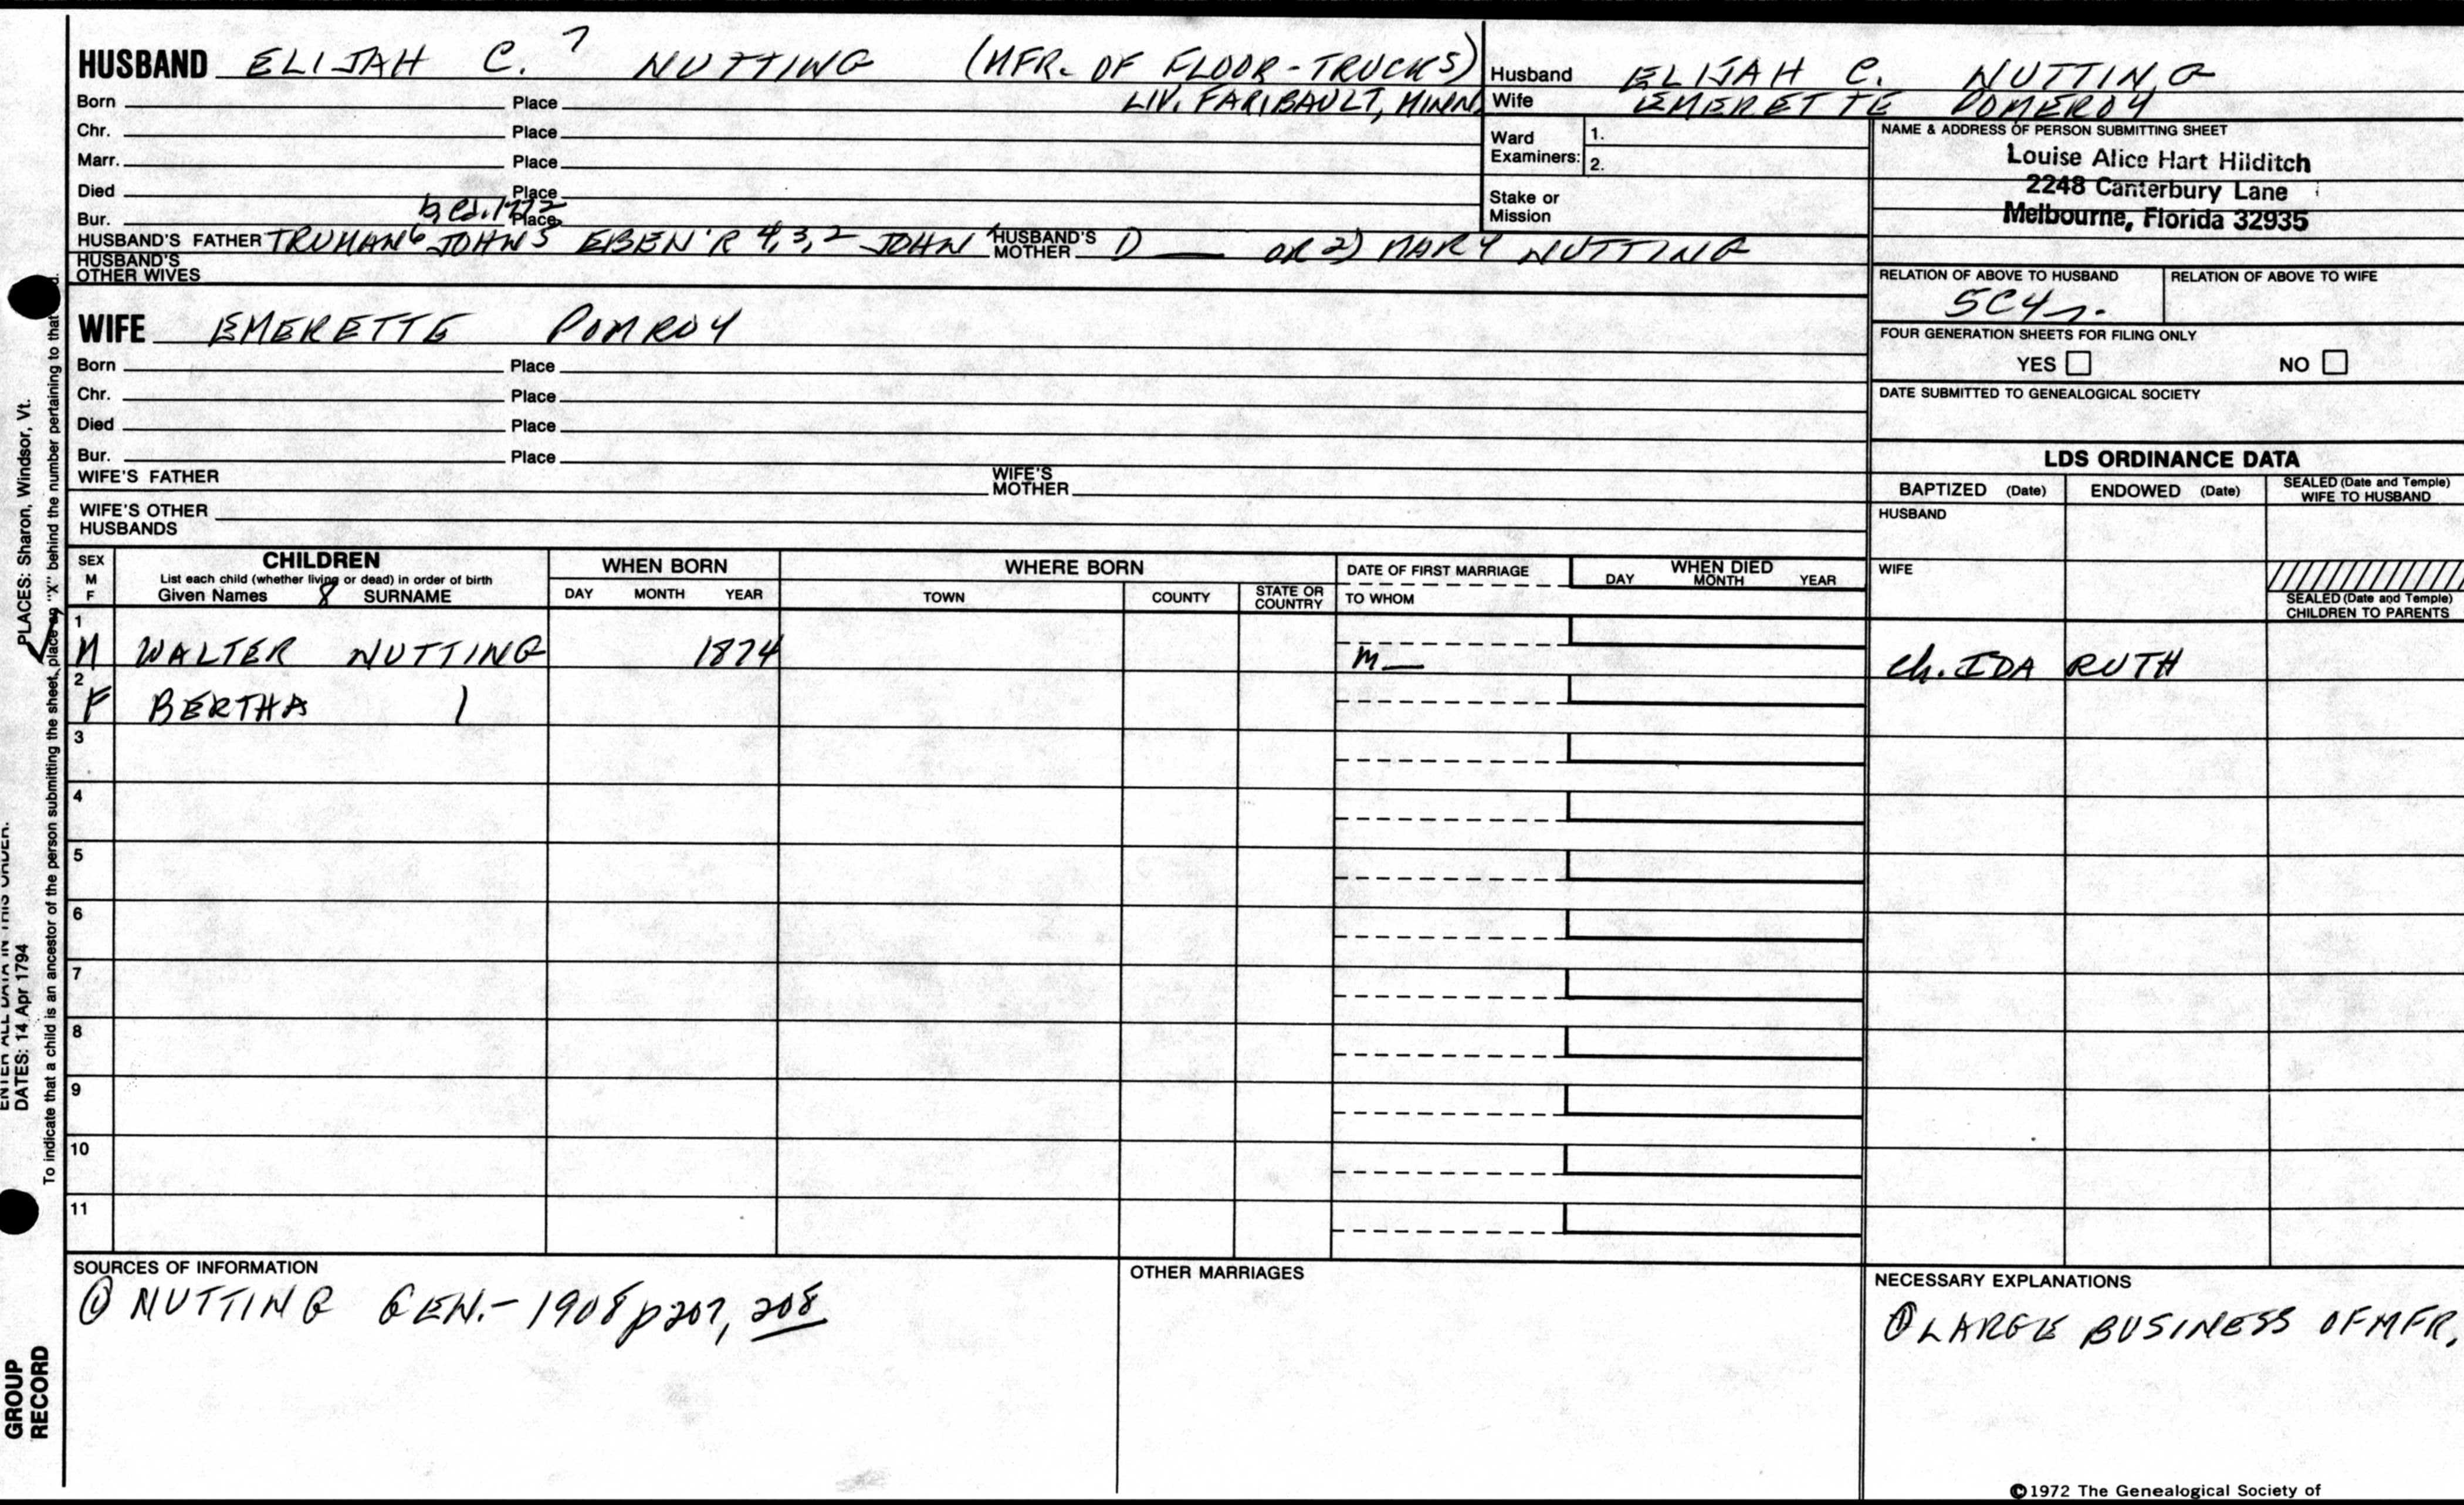 HUSBAND ELIJAH C.7 NUTTING (MFR. OF FLOOR-TRUCKS)
Born Place LIV. FARIBAULT, MINN.
Chr. Place
Marr. Place
Died Place
Bur. Place
HUSBAND'S FATHER TRUMAN6 JOHN5 EBEN'R 4,3,2 JOHN1 HUSBAND'S MOTHER 1) — OR 2) MARY NUTTING
HUSBAND'S OTHER WIVES
WIFE EMERETTE POMROY
Born Place
Chr. Place
Died Place
Bur. Place
WIFE'S FATHER WIFE'S MOTHER
WIFE'S OTHER HUSBANDS
Husband ELIJAH C. NUTTING
Wife EMERETTE POMEROY
Ward Examiners: 1.
2.
Stake or Mission
NAME & ADDRESS OF PERSON SUBMITTING SHEET
Louise Alice Hart Hilditch
2248 Canterbury Lane
Melbourne, Florida 32935
RELATION OF ABOVE TO HUSBAND RELATION OF ABOVE TO WIFE
5C4r.
FOUR GENERATION SHEETS FOR FILING ONLY
YES NO
DATE SUBMITTED TO GENEALOGICAL SOCIETY
LDS ORDINANCE DATA
BAPTIZED (Date) ENDOWED (Date) SEALED (Date and Temple) WIFE TO HUSBAND
HUSBAND
WIFE
SEALED (Date and Temple) CHILDREN TO PARENTS
SEX M F CHILDREN WHEN BORN WHERE BORN DATE OF FIRST MARRIAGE WHEN DIED
List each child (whether living or dead) in order of birth
Given Names 8 SURNAME DAY MONTH YEAR TOWN COUNTY STATE OR COUNTRY TO WHOM DAY MONTH YEAR
1 M WALTER NUTTING 1874 m— Ch. IDA RUTH
2 F BERTHA
3
4
5
6
7
8
9
10
11
SOURCES OF INFORMATION
① NUTTING GEN.-1908 p207, 208
OTHER MARRIAGES
NECESSARY EXPLANATIONS
① LARGE BUSINESS OF MFR,
©1972 The Genealogical Society of
PLACES: Sharon, Windsor, Vt.
To indicate that a child is an ancestor of the person submitting the sheet, place an "X" behind the number pertaining to that
ENTER ALL DATA IN THIS ORDER:
DATES: 14 Apr 1794
GROUP
RECORD